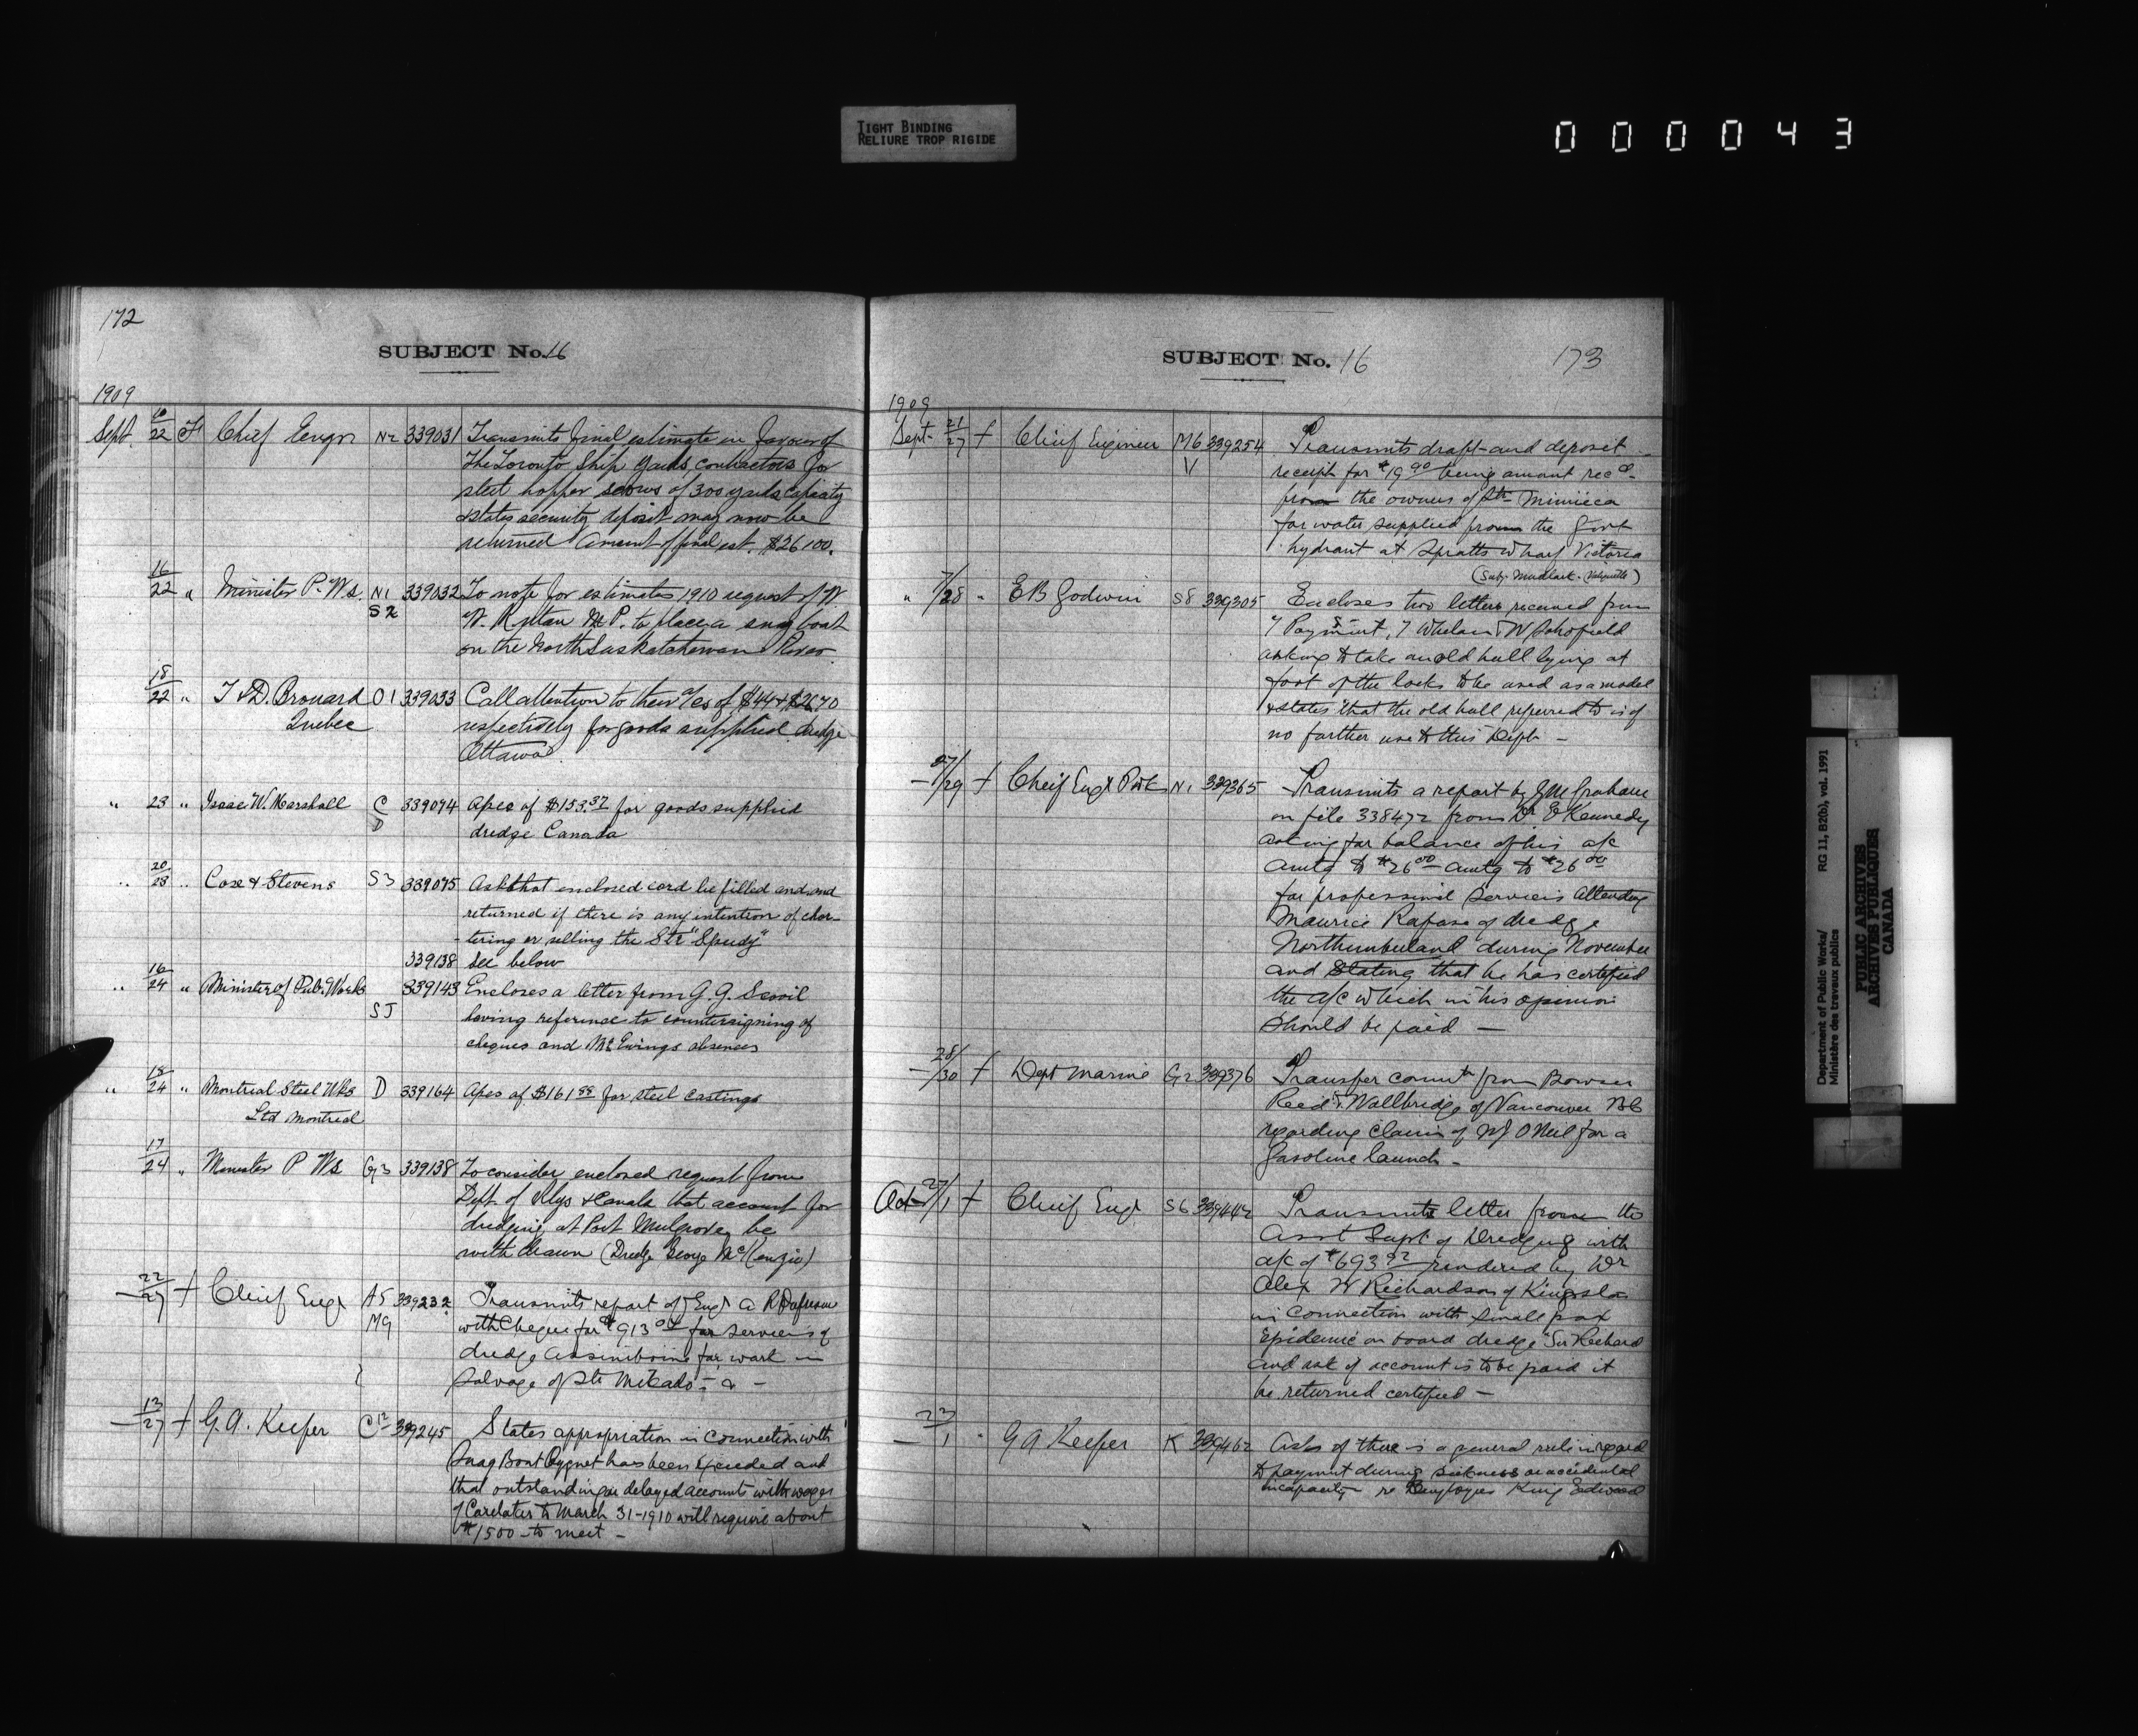 TIGHT BINDING
RELIURE TROP RIGIDE
000043
172
SUBJECT No. 16
1909
Sept. 22 Chief Engr N2 339031 Transmits final estimate in favour of
the Toronto Ship Yards, contractors for
steel hopper scows of 300 yards capacity
& states security deposit may now be
returned Amount of final est. $26100.
16/22 " Minister P. Ws. N1 339032 To note for estimates 1910 request of W
S2 W. Rutan M.P. to place a snag boat
on the North Saskatchewan River
18/22 " T & D. Brouard O1 339033 Call attention to their a/cs of $44 & $26.70
Quebec respectively for goods supplied dredge
Ottawa
" 23 " Isaac W. Marshall C 339074 Apcs of $153.37 for goods supplied
D dredge Canada
" 20/23 " Cox & Stevens S3 339075 Ask that enclosed card be filled and and
returned if there is any intention of char-
-tering or selling the Str "Speedy"
339138 see below
" 16/24 " Minister of Pub. Works 339143 Encloses a letter from G. G.
SJ having reference to countersigning of
cheques and Mr Ewings absences
" 18/24 " Montreal Steel Wks D 339164 Apcs of $161.88 for steel castings
Ltd Montreal
17/24 " Minister P Ws G3 339138 To consider enclosed request from
Dept. of Rlys & Canals that account for
dredging at Port Mulgrave, be
withdrawn (Dredge George McKenzie)
22/27 f Chief Engr A5 339232 Transmits report of Engr A R Dufresne
M9 with cheque for $913 for services of
dredge Assiniboine for work in
Salvage of Str Mikado - & -
13/27 f G. A. Keefer C12 339245 States appropriation in connection with
Snag Boat Cygnet has been exceeded and
that outstanding or delayed accounts with wages
of Caretaker to March 31-1910 will require about
$1500 - to meet -
SUBJECT No. 16
173
1909
Sept. 21/27 f Chief Engineer M6 339254 Transmits draft and deposit
V receipt for $19.90 being amount recd
from the owners of Str
for water supplied from the Govt
hydrant at Spratts wharf Victoria
" 7/28 " E B Godwin S8 339305 Encloses two letters received from
Whelan W Schofield
asking to take an old hull lying at
foot of the locks to be used as a model
& states that the old hull referred to is of
no further use to this Dept -
27/29 f Cheif Engr P Wk N1 339365 Transmits a report by J M Grahame
on file 338472 from Dr E Kennedy
asking for balance of his a/c
amtg to $26.00 amtg to $26.00
for professional services attending
Maurice Rapose of dredge
Northumberland during November
and stating that he has certified
the a/c which in his opinion
should be paid -
28/30 f Dept Marine G2 339376 Transfer comntn from Bowser
Reed & Wallbridge of Vancouver BC
regarding claim of W J O Neil for a
Gasoline launch -
Oct 27/1 f Chief Engr S6 339442 Transmits letter from the
Asst Supt of Dredging with
a/c of $693.92 rendered by Dr
Alex W Richardson of Kingston
in connection with small pox
Epidemic on board dredge "Sir Richard
and ask if account is to be paid it
be returned certified -
23/1 " G A Keefer K 339462 Asks if there is a general rule in regard
to payment during sickness or accidental
incapacity re Employees King Edward
Department of Public Works/
Ministère des travaux publics
RG 11, B2(b), vol. 1991
PUBLIC ARCHIVES
ARCHIVES PUBLIQUES
CANADA